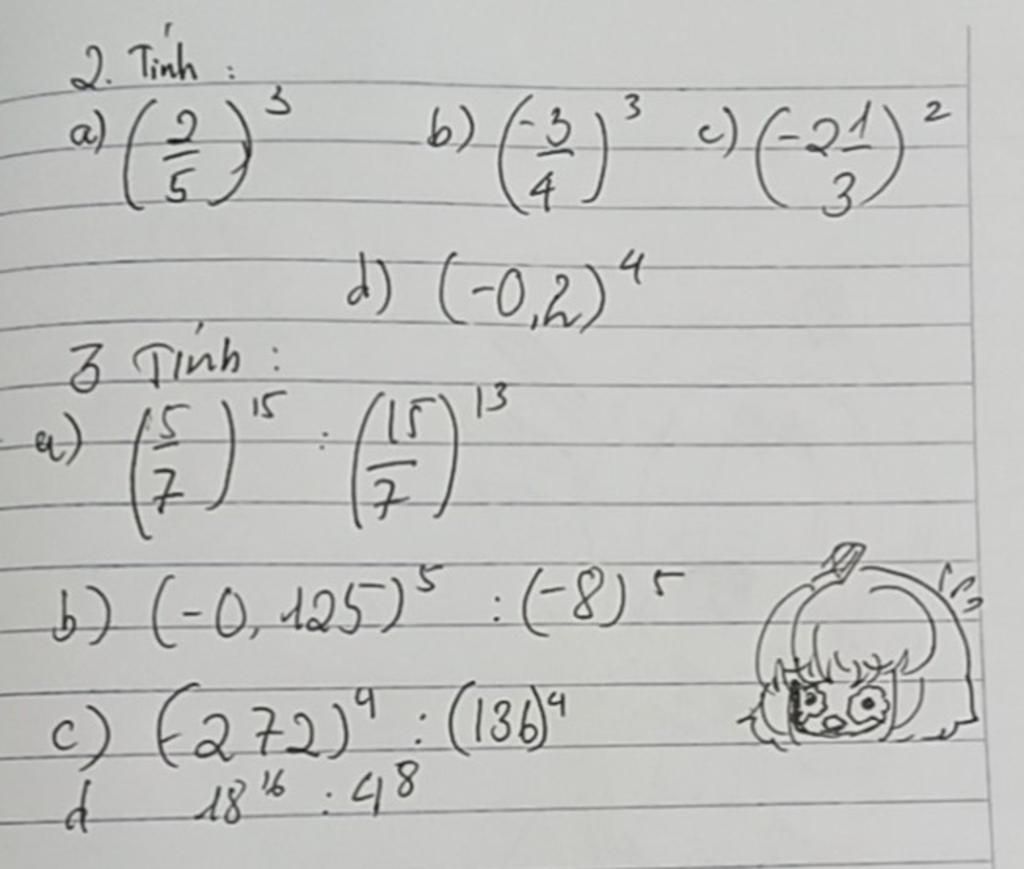 2. Tính :
a) (2/5)³ b) (-3/4)³ c) (-2 1/3)²
d) (-0,2)⁴
3 Tính :
a) (5/7)¹⁵ : (15/7)¹³
b) (-0,125)⁵ : (-8)⁵
c) (-272)⁴ : (136)⁴
d 18¹⁶ : 4⁸